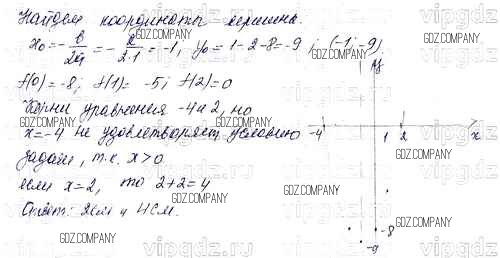 Найдем координаты вершины.
x₀ = -b/2a = -2/2·1 = -1, y₀ = 1-2-8 = -9; (-1; -9).
f(0) = -8; f(1) = -5; f(2) = 0
Корни уравнения -4 и 2, но
x = -4 не удовлетворяет условию
задачи, т.к. x > 0
если x = 2, то 2+2 = 4
Ответ: 2см и 4см.
y
-4 1 2 x
-8
-9
GDZ.COMPANY
vipgdz.ru